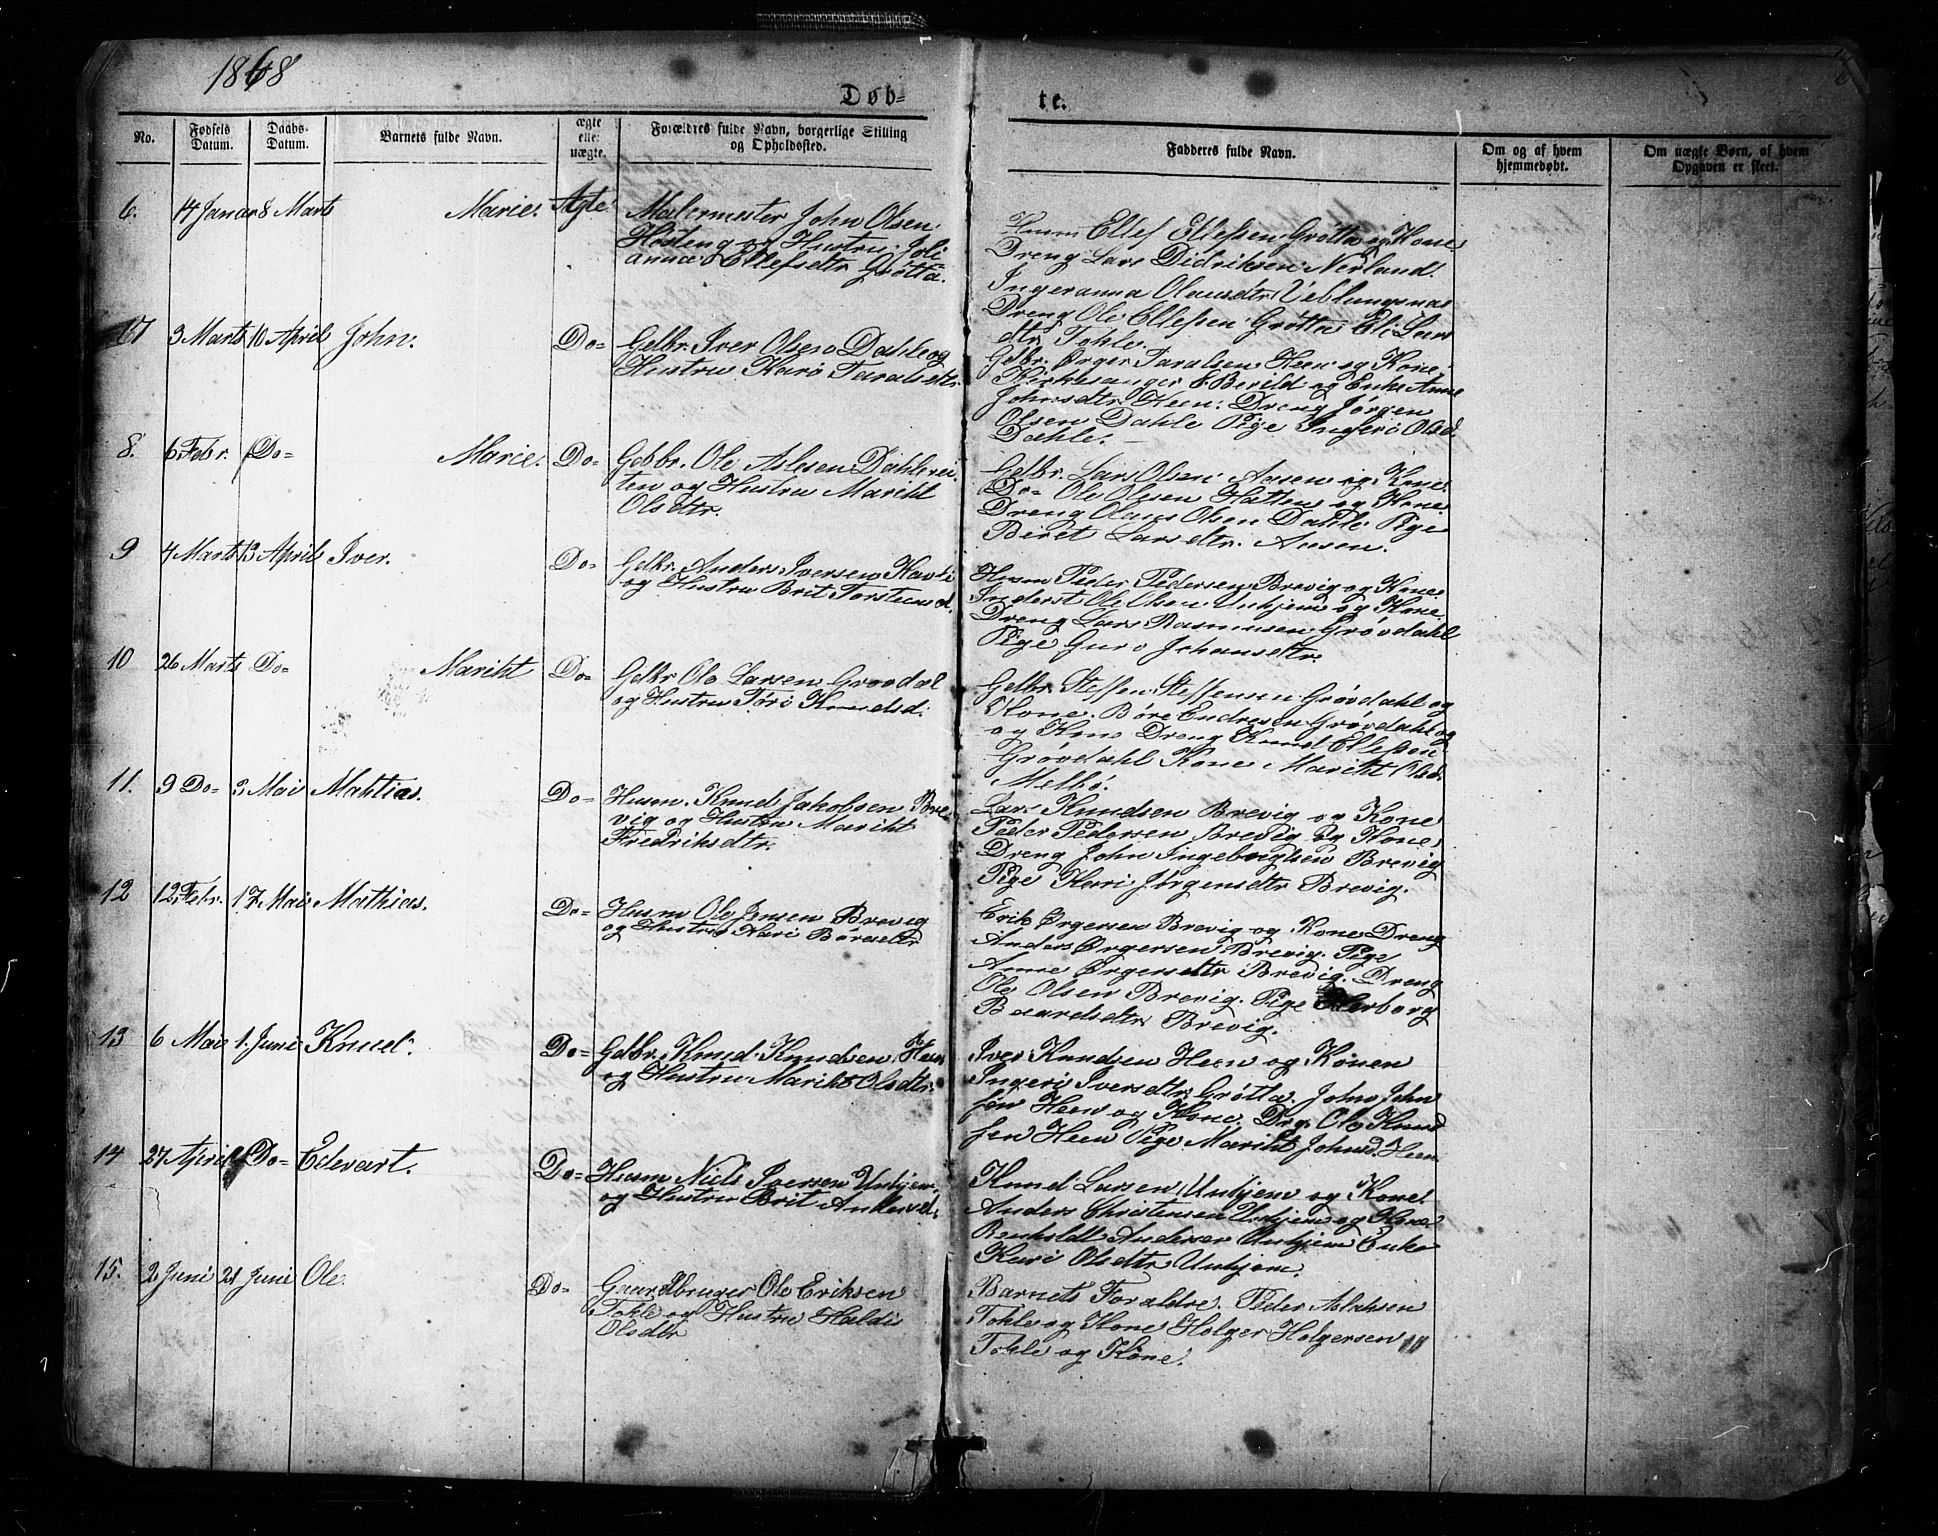 1868
Døb=
te.
No.
Fødsels Datum.
Daabs- Datum.
Barnets fulde Navn.
ægte elle: uægte.
Forældres fulde Navn, borgerlige Stilling og Opholdssted.
Fadderes fulde Navn.
Om og af hvem hjemmedøbt.
Om uægte Børn, af hvem Opgaven er skeet.
6. 14 Januar 8 Marts Marie. Ægte
Malermester John Olsen
Høsteng og Hustru Joli
anna Ellefsdtr Grøtta.
Husm Ellef Ellefsen Grøtta og Kone
Dreng Lars Didriksen Nerland.
Ingeranna Olausdtr Veblungsnæs
Dreng Ole Ellefsen Grøtta Eli Lars
dtr Tokle.
7 3 Marts 10 April John. Do=
Gdbr. Iver Olsen Dahle og
Hustru Karø Taralsdtr
Gdbr. Ørger Taralsen Heen og Kone,
Kirkesanger E. Berild og Enke Anne
Johnsdtr Heen. Dreng Jørgen
Olsen Dahle Pige Ingerø Olsd.
Dahle.
8. 6 Febr. Do= Marie. Do=
Gdbr. Ole Aslesen Dahlevei
ten og Hustru Mariht
Olsdtr.
Gdbr. Lars Olsen Aasen og Kone.
Do= Ole Olesen Hatten og Kone.
Dreng Olaus Olsen Dahle Pige
Beret Larsdtr. Aasen.
9 4 Marts 13 April Iver. Do=
Gdbr. Anders Iversen Havli
og Hustru Brit Torsteinsd.
Husm Peder Pedersen Brevig og Kone.
Inderst Ole Olsen Unhjem og Kone.
Dreng Lars Rasmussen Grøvdahl
Pige Guro Johansdtr.
10 26 Marts Do= Mariht Do=
Gdbr Ole Larsen Grøvdal
og Hustru Tøri Knudsd.
Gdbr. Steffen Steffensen Grøvdahl og
Kone. Børe Endresen Grøvdahl og
og Kone Dreng Knud Ellefsen
Grøvdahl Kone Mariht Olsd.
Melbø.
11. 9 Do= 3 Mai Mahtias. Do=
Husm. Knud Jakobsen Bre
vig og Hustru Mariht
Fredriksdtr.
Lars Knudsen Brevig og Kone
Peder Pedersen Brevig og Kone
Dreng John Ingebrigtsen Brevig
Pige Kari Jørgensdtr Brevig.
12 12 Febr. 17 Mai Mathias. Do=
Husm Ole Jensen Brevig
og Hustru Kari Børesdtr
Erik Ørgersen Brevig og Kone Dreng
Anders Ørgersen Brevig. Pige
Anne Ørgersdtr Brevig. Dreng
Ole Olsen Brevig. Pige Herborg
Baardsdtr Brevig.
13 6 Mai 1. Juni Knud. Do=
Gdbr. Knud Knudsen Heen
og Hustru Mariht Olsdtr.
Iver Knudsen Heen og Konen
Ingeri Iversdtr Grøtta. John John
sen Heen og Kone. Drg. Ole Knud
sen Heen Pige Mariht Johnsd. Heen
14 27 April Do= Edevart. Do=
Husm Niels Iversen Unhjem
og Hustru Brit Andersd.
Knud Larsen Unhjem og Kone.
Anders Christensen Unhjem og Kone
Renholdt Andersen Unhjem Enke
Kari Olsdtr Unhjem.
15. 2 Juni 21 Juni Ole. Do=
Gaardbruger Ole Eriksen
Tokle og Hustru Haldis
Olsdtr
Barnets Forældre. Peder Aslaksen
Tokle og Kone Holger Holgersen
Tokle og Kone.